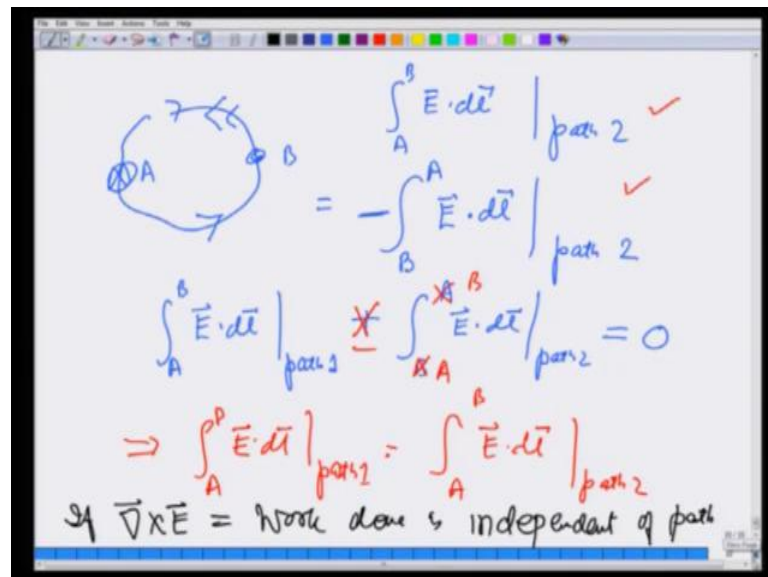 File Edit View Insert Actions Tools Help
A B
∫_A^B E⃗ · dl⃗ |path 2 ✓
= −∫_B^A E⃗ · dl⃗ |path 2 ✓
∫_A^B E⃗ · dl⃗ |path 1 − ∫_A^B E⃗ · dl⃗ |path 2 = 0
⇒ ∫_A^B E⃗ · dl⃗ |path 1 = ∫_A^B E⃗ · dl⃗ |path 2
If ∇⃗ × E⃗ = Work done is independent of path